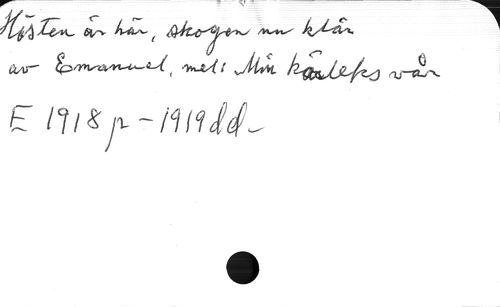 Hösten är här, skogen nu klär
av Emanuel, mel: Min kärleks vår
E 1918 p - 1919 dd -